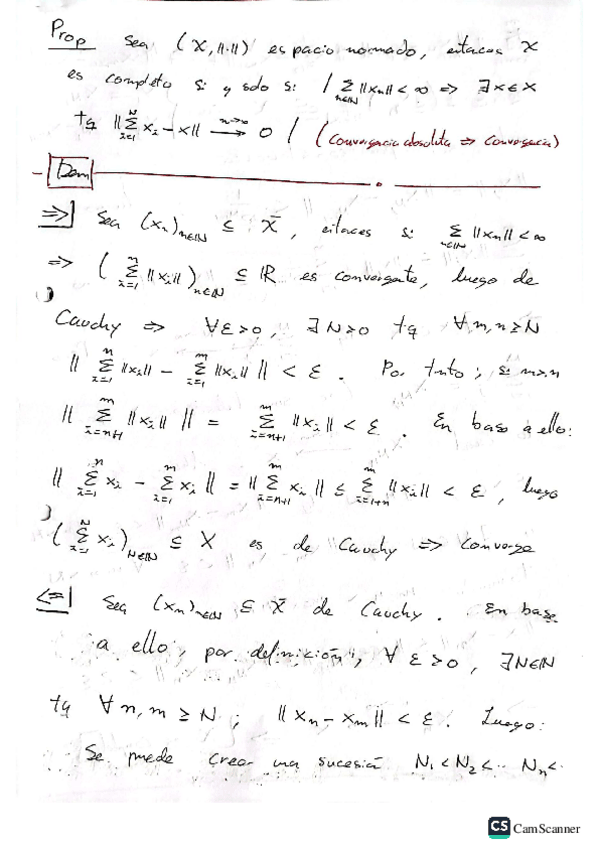 Prop Sea (X, ||·||) espacio normado, entonces X
es completo si y solo si / Σ_{n∈ℕ} ||xₙ|| < ∞ ⇒ ∃x∈X
tq ||Σ_{i=1}^{N} xᵢ - x|| →^{n→∞} 0 / (convergencia absoluta ⇒ convergencia)
Dem
⇒| Sea (xₙ)_{n∈ℕ} ⊆ X, entonces si Σ_{n∈ℕ} ||xₙ|| < ∞
⇒ (Σ_{i=1}^{n} ||xᵢ||)_{n∈ℕ} ⊆ ℝ es convergente, luego de
Cauchy ⇒ ∀ε>0, ∃N>0 tq ∀m,n≥N
|| Σ_{i=1}^{n} ||xᵢ|| - Σ_{i=1}^{m} ||xᵢ|| || < ε. Por tnto; si m>n
|| Σ_{i=n+1}^{m} ||xᵢ|| || = Σ_{i=n+1}^{m} ||xᵢ|| < ε. En base a ello:
|| Σ_{i=1}^{n} xᵢ - Σ_{i=1}^{m} xᵢ || = || Σ_{i=n+1}^{m} xᵢ || ≤ Σ_{i=1+n}^{m} ||xᵢ|| < ε, luego
(Σ_{i=1}^{N} xᵢ)_{N∈ℕ} ⊆ X es de Cauchy ⇒ converge
⇐| Sea (xₙ)_{n∈ℕ} ⊆ X de Cauchy. En base
a ello, por definición, ∀ε>0, ∃N∈ℕ
tq ∀n,m ≥ N; ||xₙ - xₘ|| < ε. Luego:
Se puede crear una sucesión N₁<N₂<·· Nₙ<·
CS CamScanner